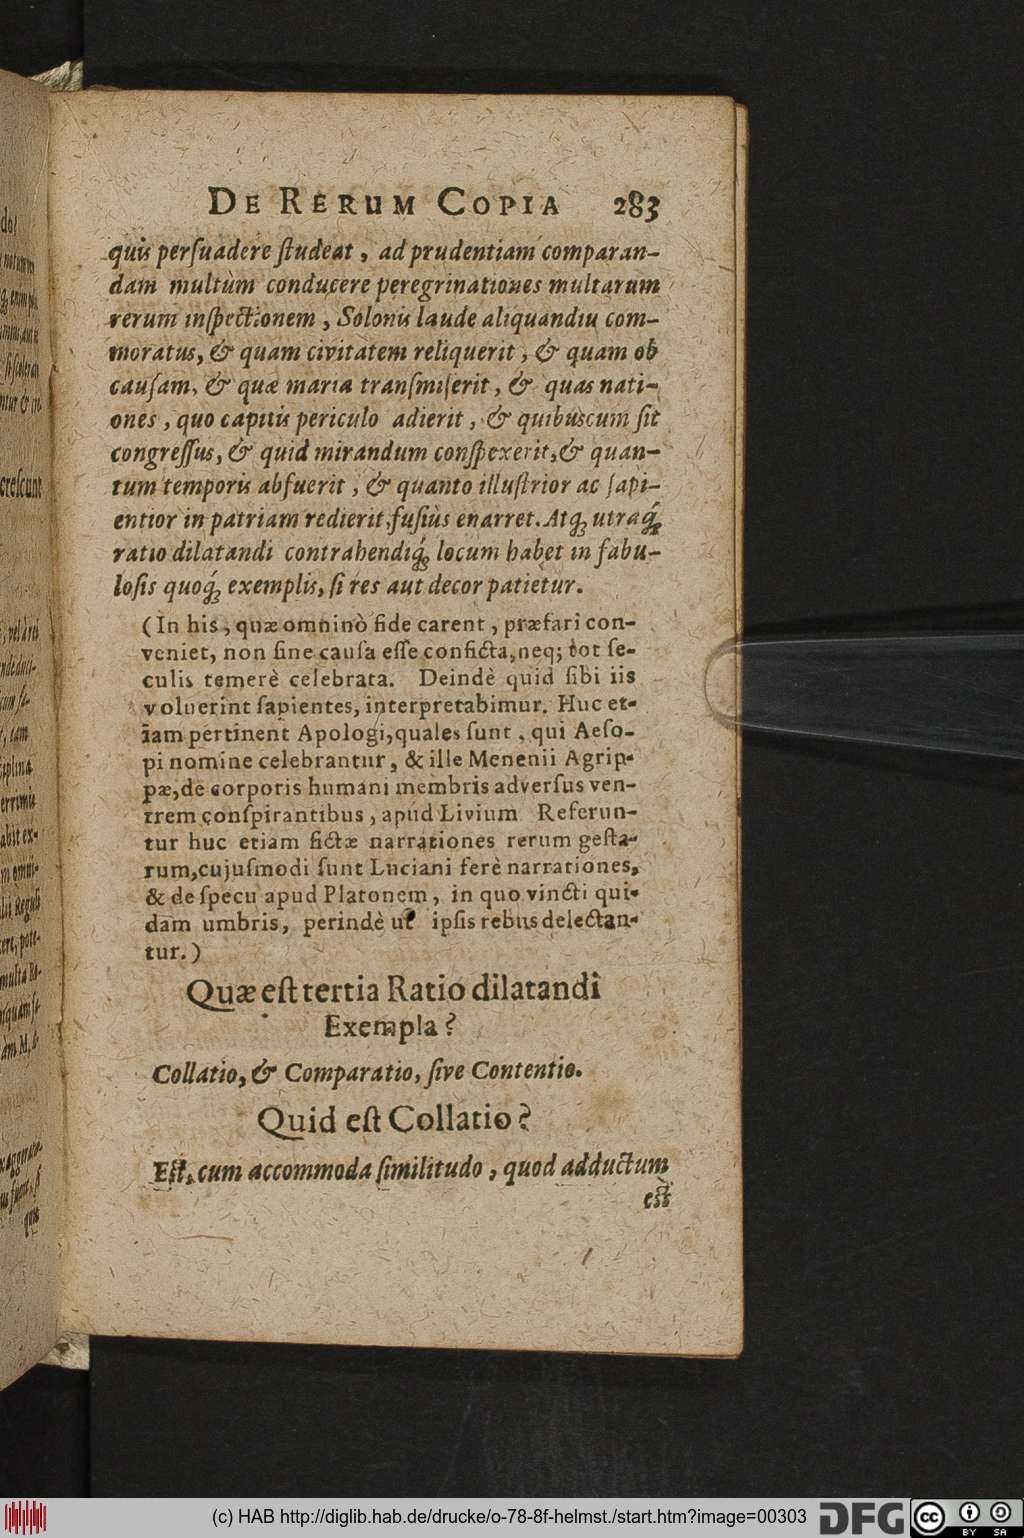 DE RERUM COPIA 283
quis perſuadere ſtudeat, ad prudentiam comparan-
dam multùm conducere peregrinationes multarum
rerum inſpectionem, Solonis laude aliquandiu com-
moratus, & quam civitatem reliquerit, & quam ob
cauſam, & quæ maria tranſmiſerit, & quas nati-
ones, quo capitis periculo adierit, & quibuscum ſit
congreſſus, & quid mirandum conſpexerit, & quan-
tum temporis abfuerit, & quanto illuſtrior ac ſapi-
entior in patriam redierit, fuſiùs enarret. Atq; utraq́;
ratio dilatandi contrahendiq́; locum habet in fabu-
loſis quoq́; exemplis, ſi res aut decor patietur.
(In his, quæ omninò fide carent, præfari con-
veniet, non ſine cauſa eſſe conficta, neq; tot ſe-
culis temerè celebrata. Deindè quid ſibi iis
voluerint ſapientes, interpretabimur. Huc et-
iam pertinent Apologi, quales ſunt, qui Aeſo-
pi nomine celebrantur, & ille Menenii Agrip-
pæ, de corporis humani membris adverſus ven-
trem conſpirantibus, apud Livium Referun-
tur huc etiam fictæ narrationes rerum geſta-
rum, cujuſmodi ſunt Luciani ferè narrationes,
& de ſpecu apud Platonem, in quo vincti qui-
dam umbris, perindè ut ipſis rebus delectan-
tur.)
Quæ eſt tertia Ratio dilatandi
Exempla?
Collatio, & Comparatio, ſive Contentio.
Quid eſt Collatio?
Eſt, cum accommoda ſimilitudo, quod adductum
eſt
(c) HAB http://diglib.hab.de/drucke/o-78-8f-helmst./start.htm?image=00303
DFG
cc
BY SA